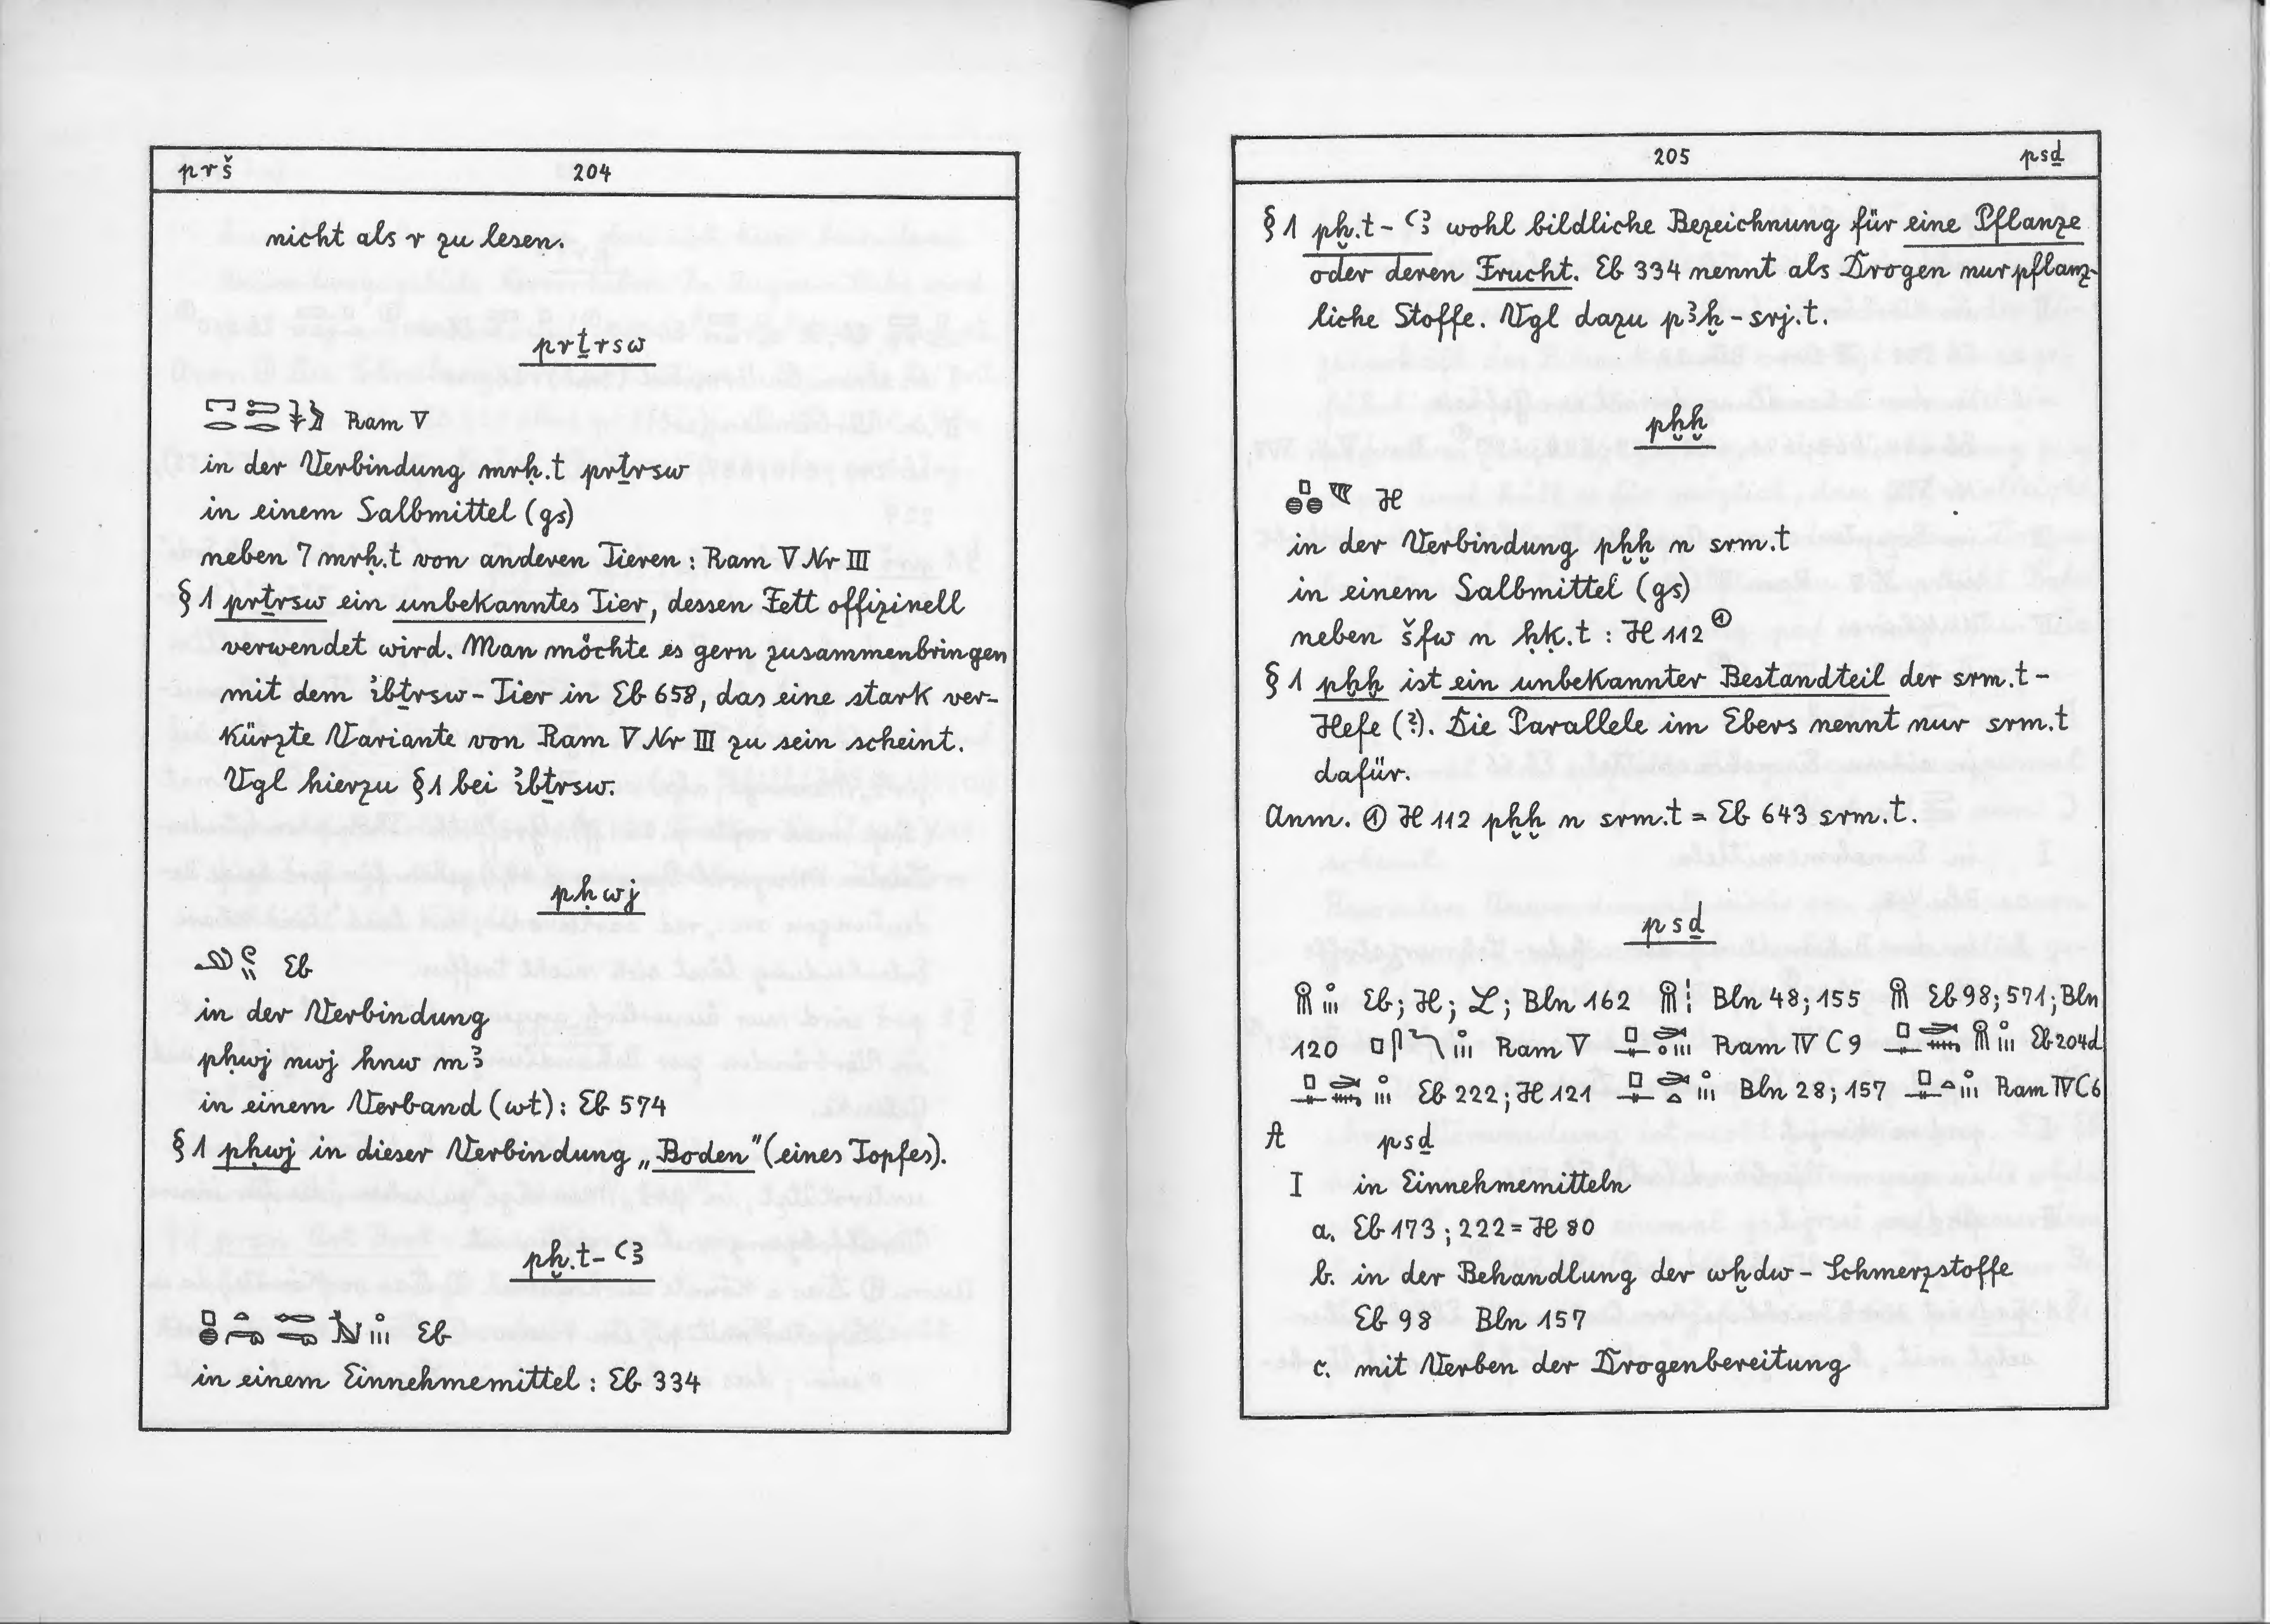 prš 204
nicht als r zu lesen.
prṯrsw
Ram V
in der Verbindung mrḥ.t prṯrsw
in einem Salbmittel (gs)
neben 7 mrḥ.t von anderen Tieren: Ram V Nr III
§ 1 prṯrsw ein unbekanntes Tier, dessen Fett offizinell
verwendet wird. Man möchte es gern zusammenbringen
mit dem ꜣbṯrsw-Tier in Eb 658, das eine stark ver-
kürzte Variante von Ram V Nr III zu sein scheint.
Vgl hierzu § 1 bei ꜣbṯrsw.
pḥwj
Eb
in der Verbindung
pḥwj nwj hnw mꜣ
in einem Verband (wt): Eb 574
§ 1 pḥwj in dieser Verbindung „Boden" (eines Topfes).
pḫ.t-ꜥꜣ
Eb
in einem Einnehmemittel: Eb 334
205 psḏ
§ 1 pḫ.t-ꜥꜣ wohl bildliche Bezeichnung für eine Pflanze
oder deren Frucht. Eb 334 nennt als Drogen nur pflanz-
liche Stoffe. Vgl dazu pꜣḫ-srj.t.
pḫḫ
H
in der Verbindung pḫḫ n srm.t
in einem Salbmittel (gs)
neben šfw n ḥḳ.t: H 112 ①
§ 1 pḫḫ ist ein unbekannter Bestandteil der srm.t-
Hefe (?). Die Parallele im Ebers nennt nur srm.t
dafür.
Anm. ① H 112 pḫḫ n srm.t = Eb 643 srm.t.
psḏ
Eb; H; L; Bln 162 Bln 48; 155 Eb 98; 571; Bln
120 Ram V Ram IV C 9 Eb 204d
Eb 222; H 121 Bln 28; 157 Ram IV C 6
A psḏ
I in Einnehmemitteln
a. Eb 173; 222 = H 80
b. in der Behandlung der wḫdw-Schmerzstoffe
Eb 98 Bln 157
c. mit Verben der Drogenbereitung